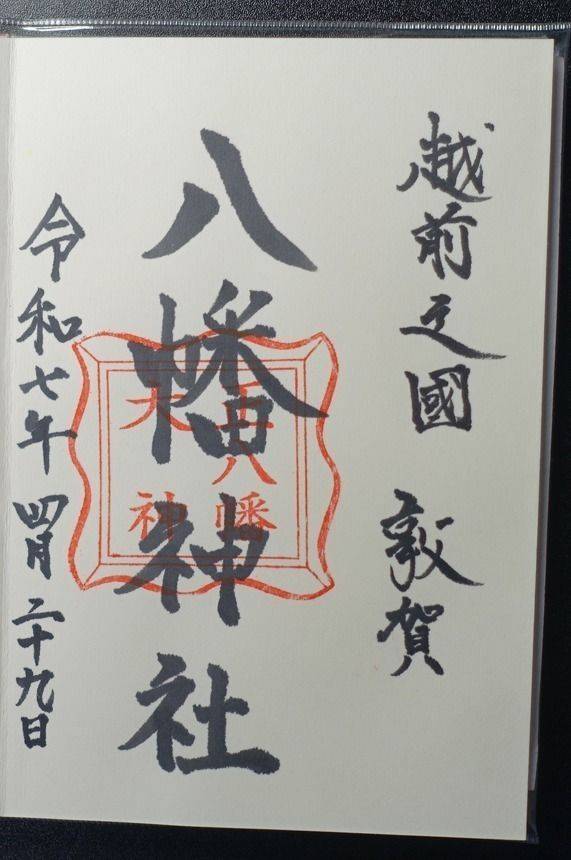 越前之國 敦賀
八幡神社
正八幡
大神
令和七年 四月二十九日